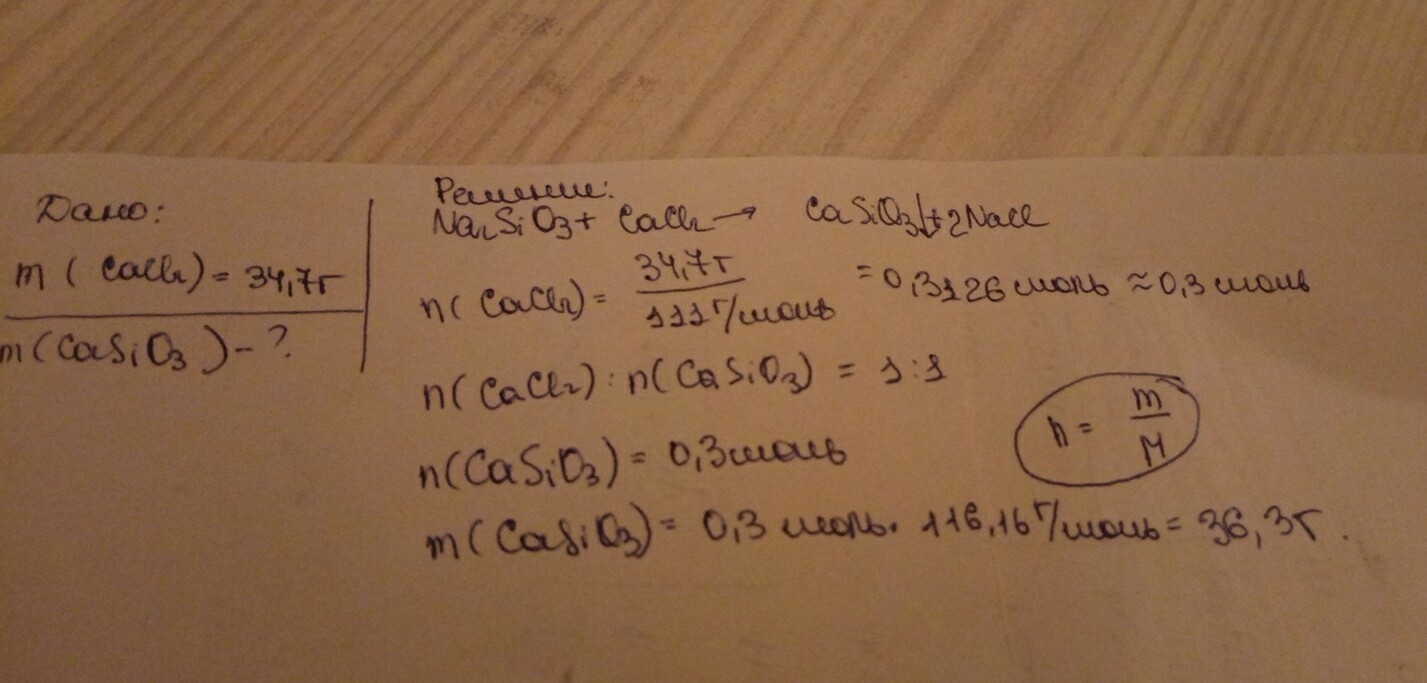 Дано:
m ( CaCl₂) = 34,7г
m(CaSiO₃) - ?
Решение:
Na₂SiO₃ + CaCl₂ → CaSiO₃↓ + 2NaCl
n( CaCl₂) = 34,7г / 111г/моль = 0,3126 моль ≈ 0,3 моль
n( CaCl₂) : n( CaSiO₃) = 1:1
n(CaSiO₃) = 0,3 моль
n = m / M
m( CaSiO₃) = 0,3 моль · 116,16г/моль = 36,3г.